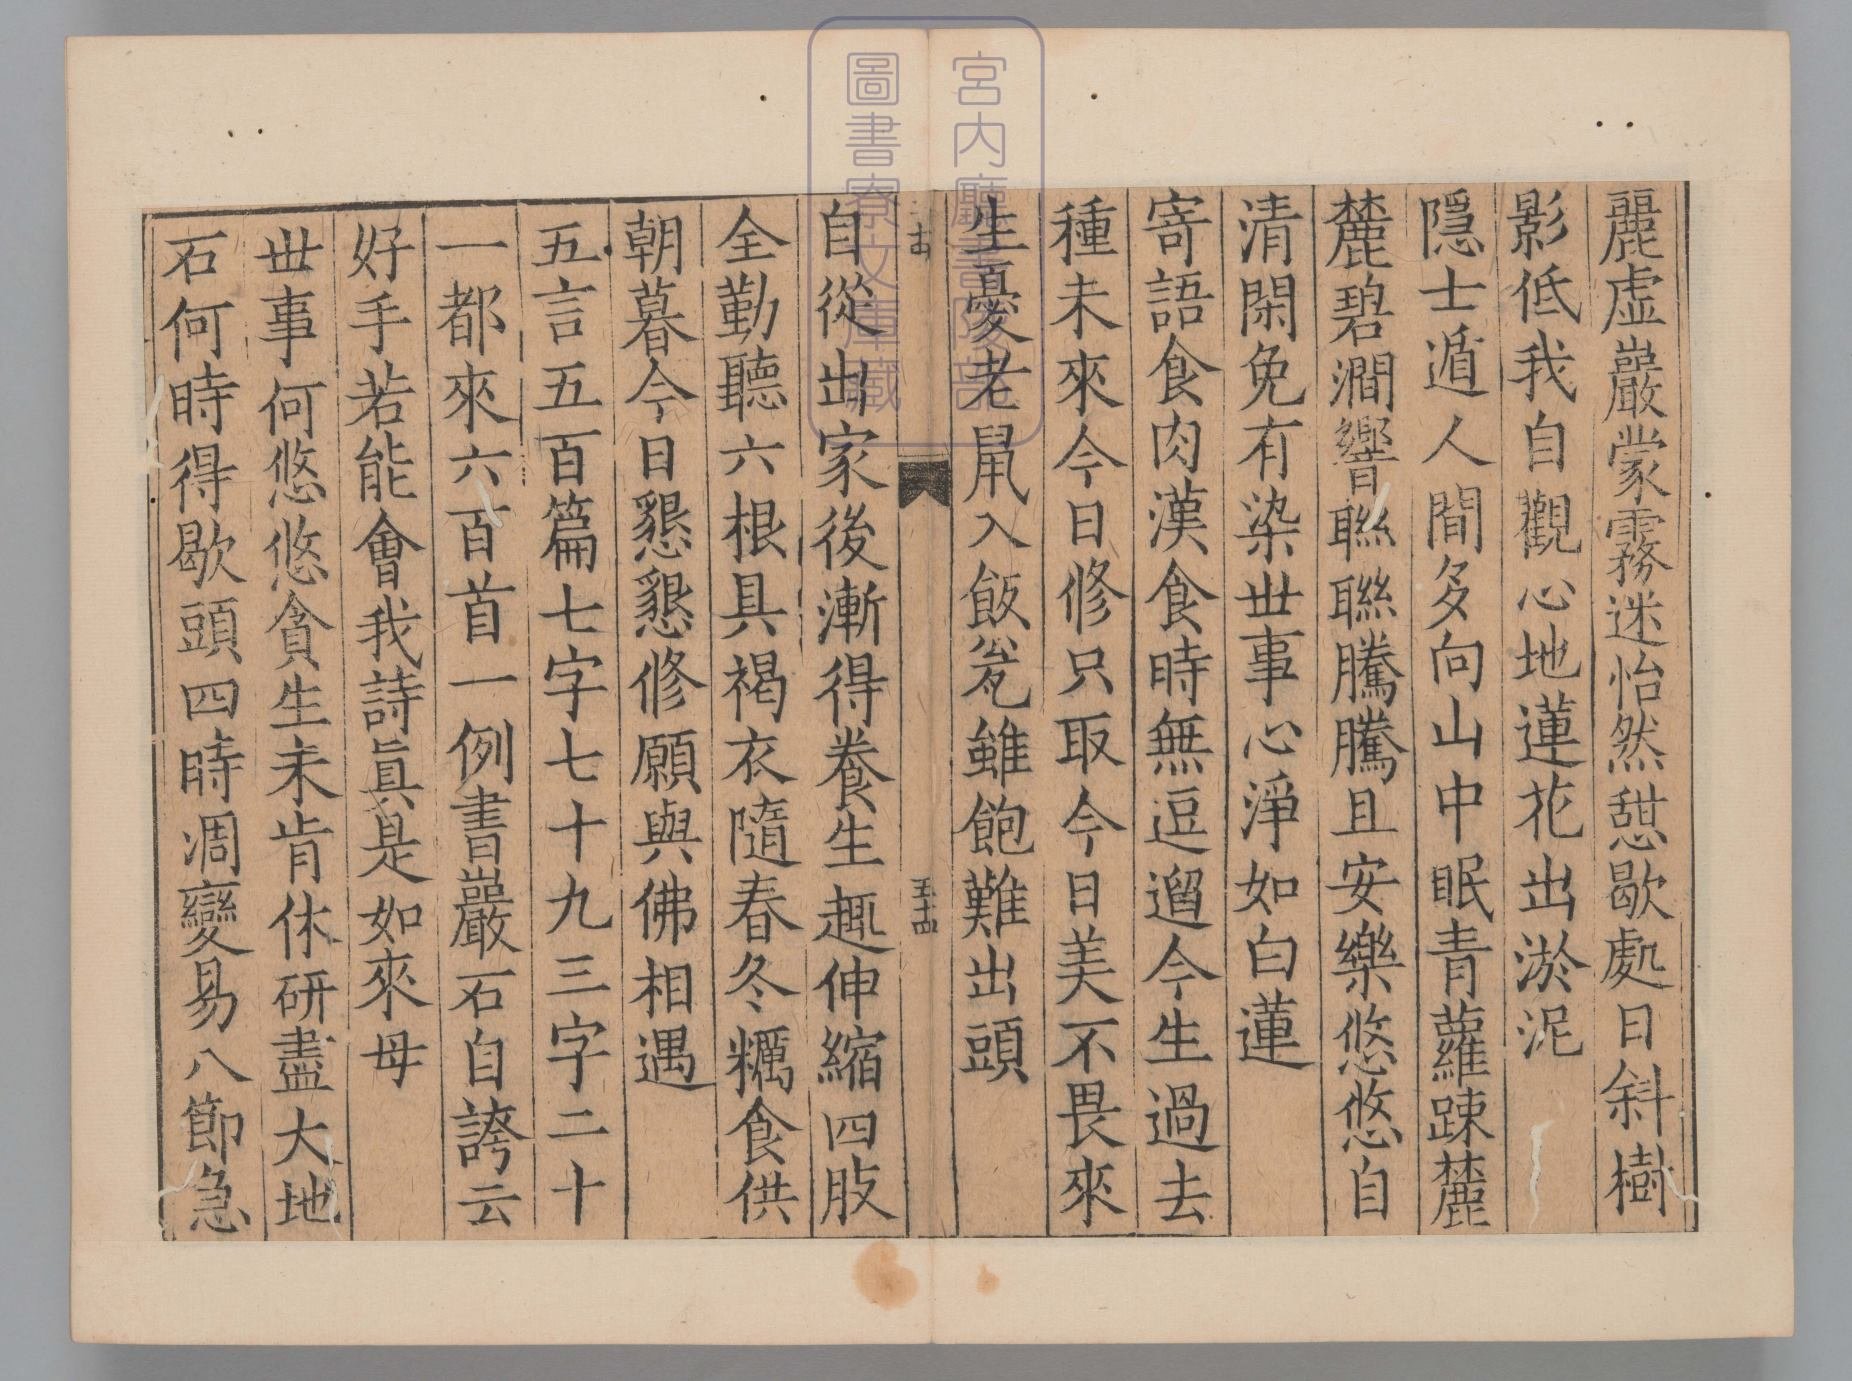 麗虚巖蒙霧迷怡然憇歇處日斜樹
影低我自觀心地蓮花出淤泥
隱士遁人間多向山中眠青蘿踈麓
麓碧澗響聯聯騰騰且安樂悠悠自
清閑免有染世事心淨如白蓮
寄語食肉漢食時無逗遛今生過去
種未來今日修只取今日美不畏來
生憂老鼠入飯瓮雖飽難出頭
自從出家後漸得養生趣伸縮四肢
全勤聽六根具褐衣隨春冬糲食供
朝暮今日懇懇修願與佛相遇
五言五百篇七字七十九三字二十
一都來六百首一例書巖石自誇云
好手若能會我詩眞是如來母
世事何悠悠貪生未肯休研盡大地
石何時得歇頭四時凋變易八節急
宮内廳書陵部
圖書寮文庫藏